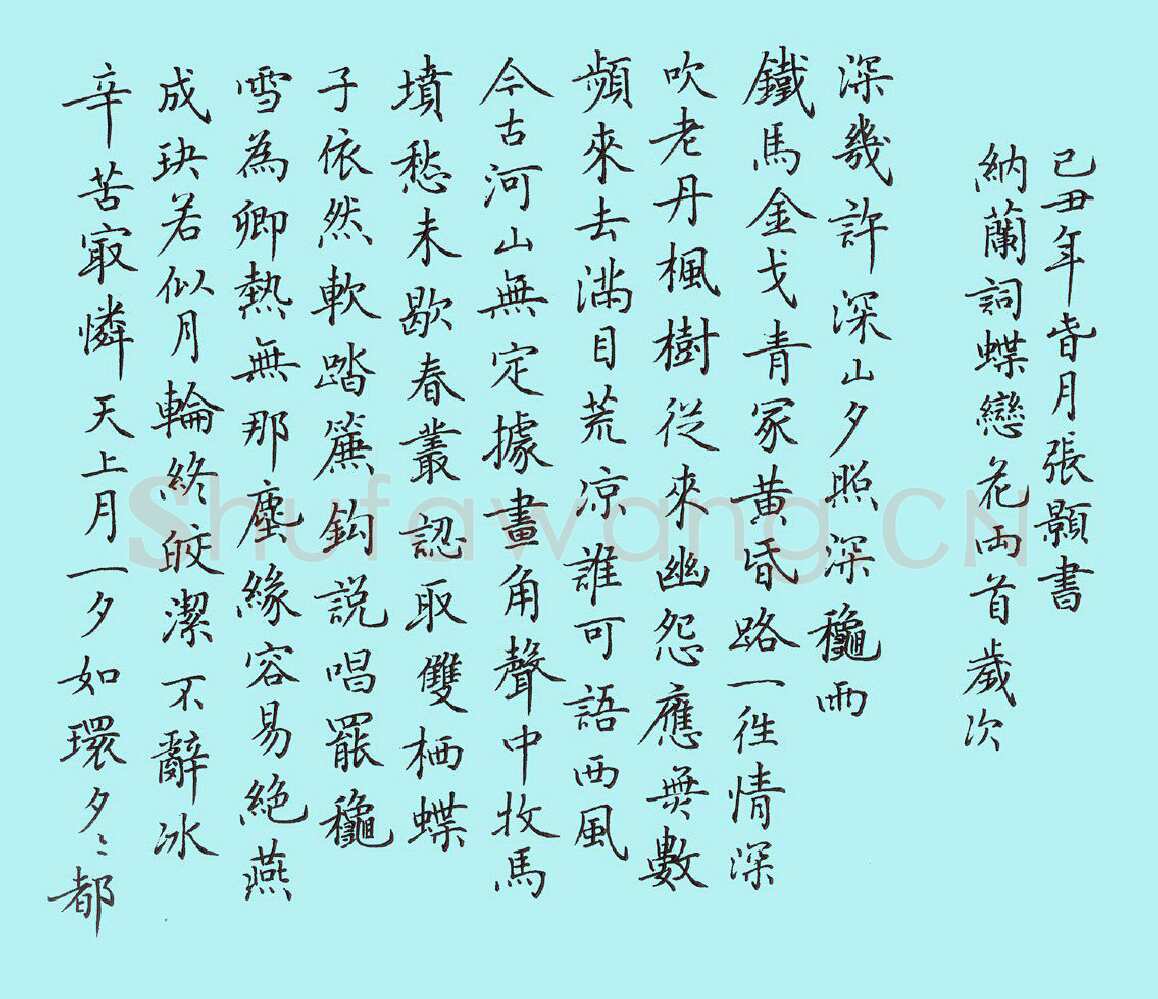 辛苦㝡憐天上月一夕如環夕〻都
成玦若似月輪終皎潔不辭冰
雪為卿熱無那塵緣容易絕燕
子依然軟踏簾鈎説唱罷龝
墳愁未歇春叢認取雙栖蝶
今古河山無定據畫角聲中牧馬
頻來去滿目荒凉誰可語西風
吹老丹楓樹從來幽怨應無數
鐵馬金戈青冢黃昏路一徃情深
深幾許深山夕照深龝雨
納蘭詞蝶戀花兩首歲次
己丑年月張顥書
Shufawang.CN